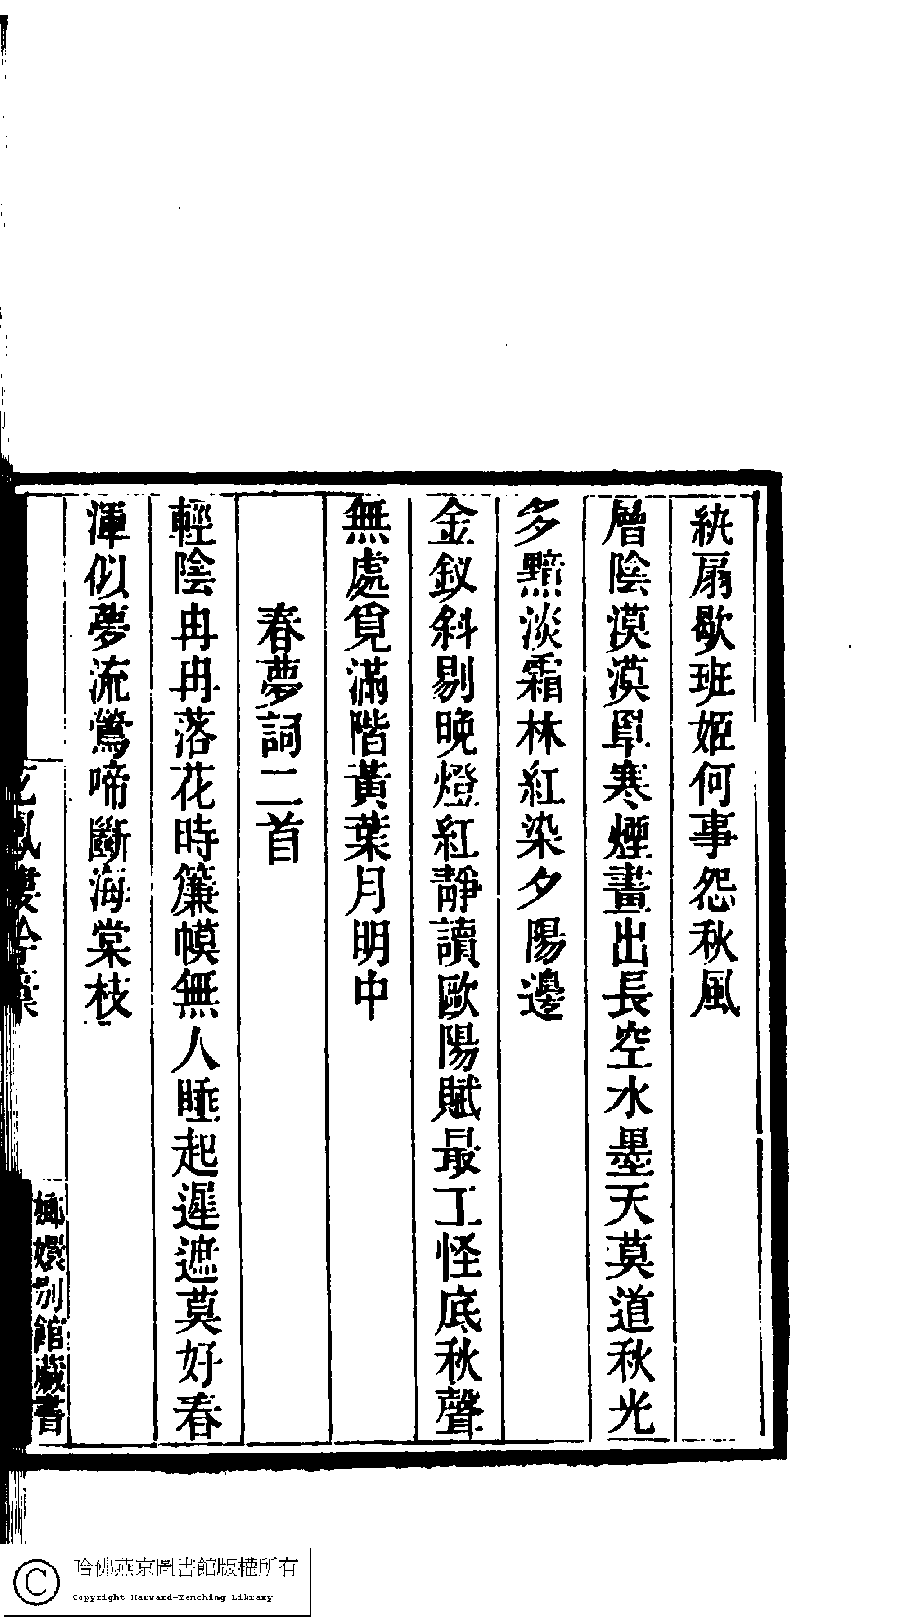 紈扇歇班姬何事怨秋風
層陰漠漠罩寒煙畫出長空水墨天莫道秋光
多黯淡霜林紅染夕陽邊
金釵斜剔晚燈紅靜讀歐陽賦最工怪底秋聲
無處覓滿階黃葉月明中
春夢詞二首
輕陰冉冉落花時簾幙無人睡起遲遮莫好春
渾似夢流鶯啼斷海棠枝
嫏嬛別館藏書
哈佛燕京圖書館版權所有
Copyright Harvard-Yenching Library